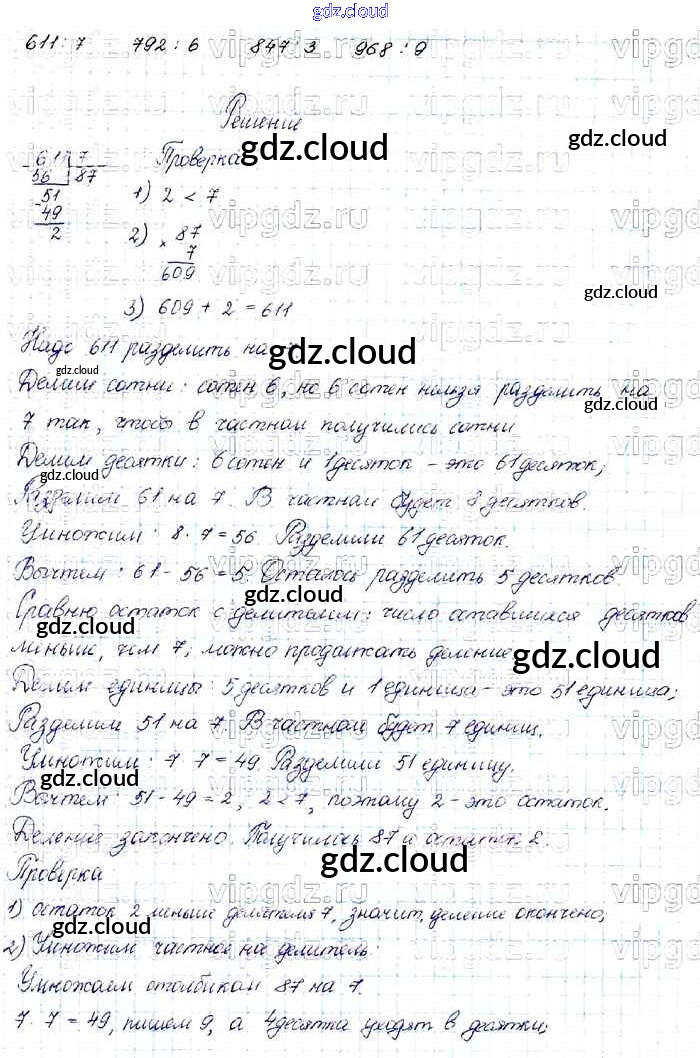 gdz.cloud
611 : 7 792 : 6 847 : 3 968 : 9
Решение
611 7 Проверка
56 87
51 1) 2 < 7
49
2 2) × 87
7
609
3) 609 + 2 = 611
Надо 611 разделить на
Делим сотни: сотен 6, но 6 сотен нельзя разделить на
7 так, чтобы в частном получились сотни
Делим десятки: 6 сотен и 1 десяток - это 61 десяток;
Разделим 61 на 7. В частном будет 8 десятков.
Умножим: 8 · 7 = 56. Разделили 61 десяток.
Вычтем: 61 - 56 = 5. Осталось разделить 5 десятков
Сравню остаток с делителем: число оставшихся десятков
меньше, чем 7, можно продолжать деление
Делим единицы: 5 десятков и 1 единица - это 51 единица;
Разделим 51 на 7. В частном будет 7 единиц.
Умножим: 7 · 7 = 49. Разделили 51 единицу.
Вычтем: 51 - 49 = 2, 2 < 7, поэтому 2 - это остаток.
Деление закончено. Получилось 87 и остаток 2.
Проверка
1) остаток 2 меньше делителя 7, значит, деление окончено;
2) Умножим частное на делитель:
Умножаем столбиком 87 на 7.
7 · 7 = 49, пишем 9, а 4 десятка уходят в десятки;
gdz.cloud
gdz.cloud
gdz.cloud
gdz.cloud
gdz.cloud
gdz.cloud
gdz.cloud
gdz.cloud
gdz.cloud
gdz.cloud
gdz.cloud
gdz.cloud
gdz.cloud
vipgdz.ru